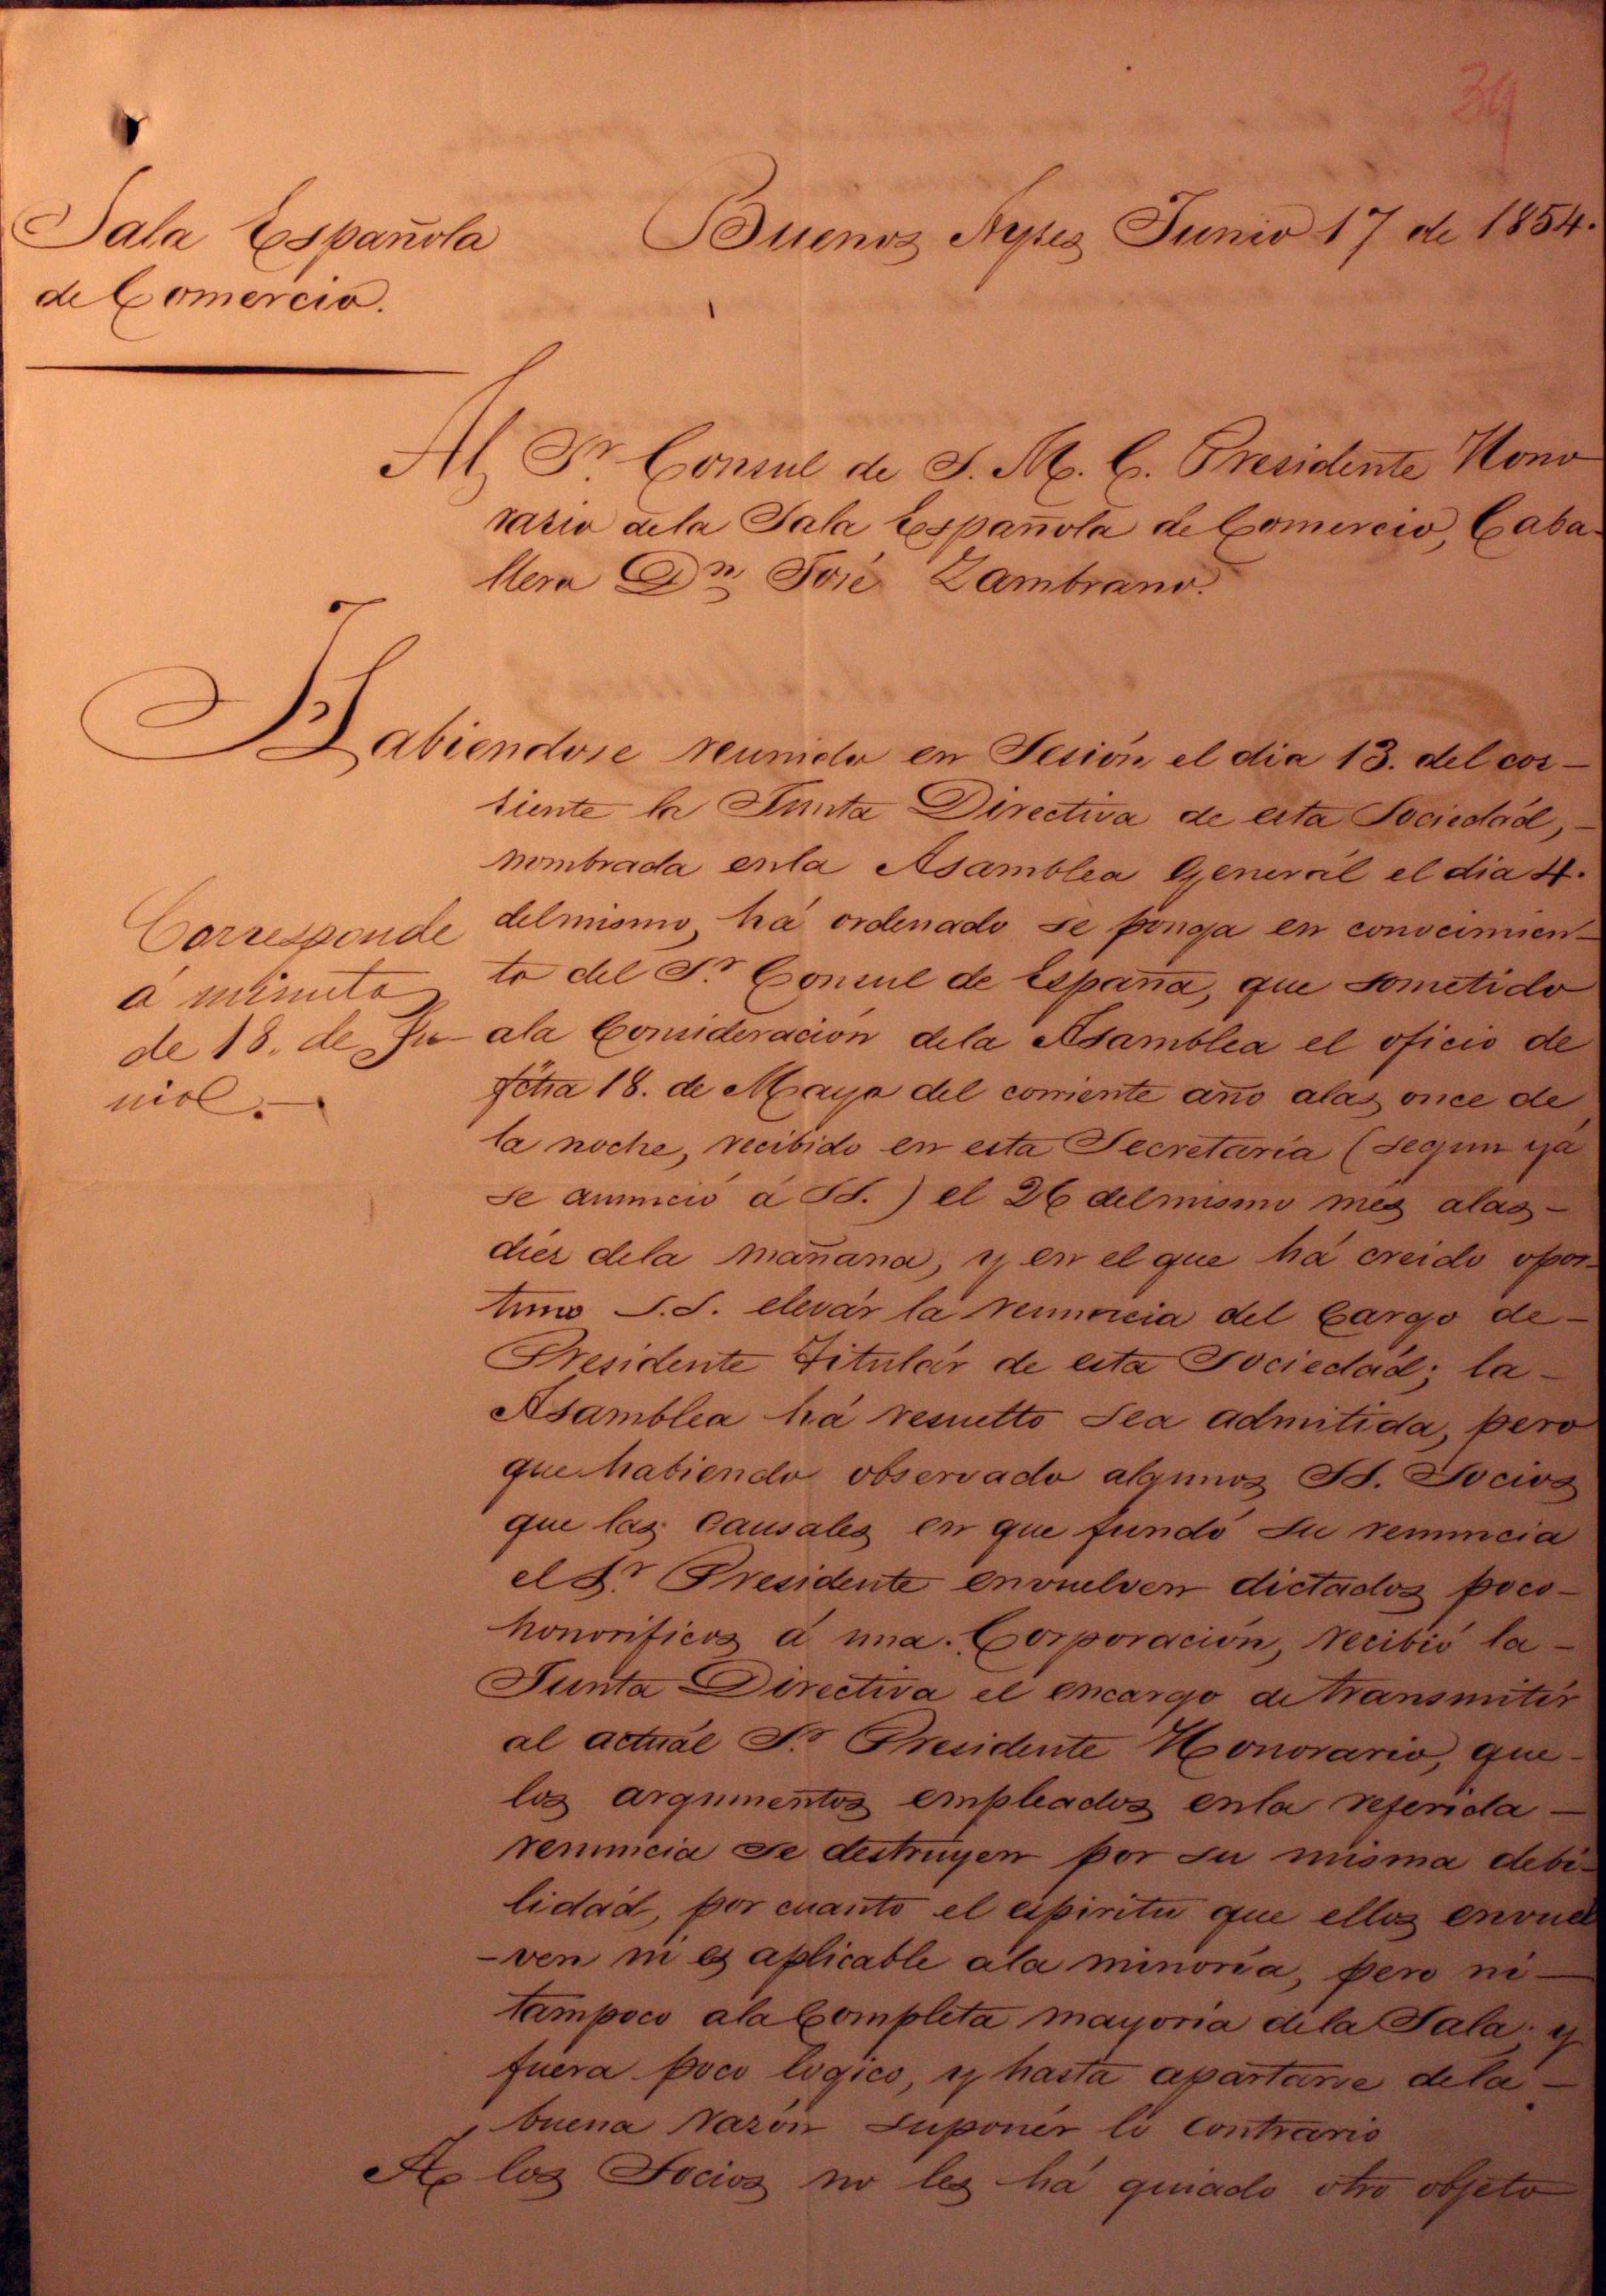 39
Sala Española
de Comercio.
Buenos Ayres Junio 17 de 1854.
Al Sr. Consul de S. M. C. Presidente Hono
rario dela Sala Española de Comercio, Caba-
llero Dn José Zambrano.
Habiendose reunido en Sesión el dia 13. del cor-
riente la Junta Directiva de esta Sociedád,-
nombrada enla Asamblea Generál el dia 4.
delmismo, há ordenado se ponga en conocimien-
to del Sr. Consul de España, que sometido
ala Consideración dela Asamblea el oficio de
fcha 18. de Mayo del corriente año alas once de
la noche, recibido en esta Secretaría (segun yá
se anunció á SS.) el 26 delmismo mes alas-
diez dela mañana, y en el que há creido opor-
tuno S.S. elevár la renuncia del Cargo de-
Presidente Titulár de esta Sociedád; la-
Asamblea há resuelto sea admitida, pero
que habiendo observado algunos SS. Socios
que las causales en que fundó su renuncia
el Sr. Presidente envuelven dictados poco-
honorificos á una Corporación, recibió la-
Junta Directiva el encargo de transmitír
al actuál Sr. Presidente Honorario, que-
los argumentos empleados enla referida-
renuncia se destruyen por su misma debi-
lidád, por cuanto el espiritu que ellos envuel
-ven ni es aplicable ala minoría, pero ni-
tampoco ala Completa mayoría dela Sala; y
fuera poco logico, y hasta apartarse dela-
buena razón suponér lo contrario
A los Socios no les há guiado otro objeto
Corresponde
á minuta
de 18. de Ju-
nio.-